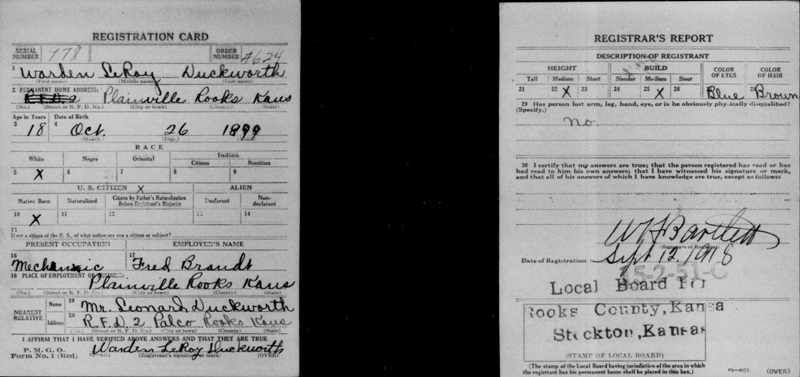 REGISTRATION CARD
SERIAL NUMBER 778 ORDER NUMBER A624
1 Warden LeRoy Duckworth
(First name) (Middle name) (Last name)
2 PERMANENT HOME ADDRESS:
R.F.D. 2 Plainville Rooks Kans
(No.) (Street or R. F. D. No.) (City or town) (County) (State)
Age in Years Date of Birth
3 18 4 Oct. 26 1899
(Month.) (Day.) (Year.)
RACE
White Negro Oriental Indian
Citizen Noncitizen
5 X 6 7 8 9
U. S. CITIZEN X ALIEN
Native Born Naturalized Citizen by Father's Naturalization Before Registrant's Majority Declarant Non-declarant
10 X 11 12 13 14
15
If not a citizen of the U. S., of what nation are you a citizen or subject?
PRESENT OCCUPATION EMPLOYER'S NAME
16 Mechanic 17 Fred Brandt
18 PLACE OF EMPLOYMENT OR BUSINESS:
Plainville Rooks Kans
(No.) (Street or R. F. D. No.) (City or town) (County) (State)
NEAREST RELATIVE Name 19 Mr. Leonard Duckworth
Address 20 R.F.D. 2 Palco Rooks Kans
(No.) (Street or R. F. D. No.) (City or town) (County) (State)
I AFFIRM THAT I HAVE VERIFIED ABOVE ANSWERS AND THAT THEY ARE TRUE
P. M. G. O.
Form No. 1 (Red) Warden LeRoy Duckworth
(Registrant's signature or mark) (OVER)
REGISTRAR'S REPORT
DESCRIPTION OF REGISTRANT
HEIGHT BUILD COLOR OF EYES COLOR OF HAIR
Tall Medium Short Slender Medium Stout
21 22 X 23 24 25 X 26 27 Blue 28 Brown
29 Has person lost arm, leg, hand, eye, or is he obviously physically disqualified?
(Specify.)
No.
30 I certify that my answers are true; that the person registered has read or has
had read to him his own answers; that I have witnessed his signature or mark,
and that all of his answers of which I have knowledge are true, except as follows:
W H Bartlett
Date of Registration Sept 12, 1918
15-2-51-C
Local Board for
Rooks County, Kansa
Stockton, Kansas
(STAMP OF LOCAL BOARD)
(The stamp of the Local Board having jurisdiction of the area in which
the registrant has his permanent home shall be placed in this box.)
(OVER)